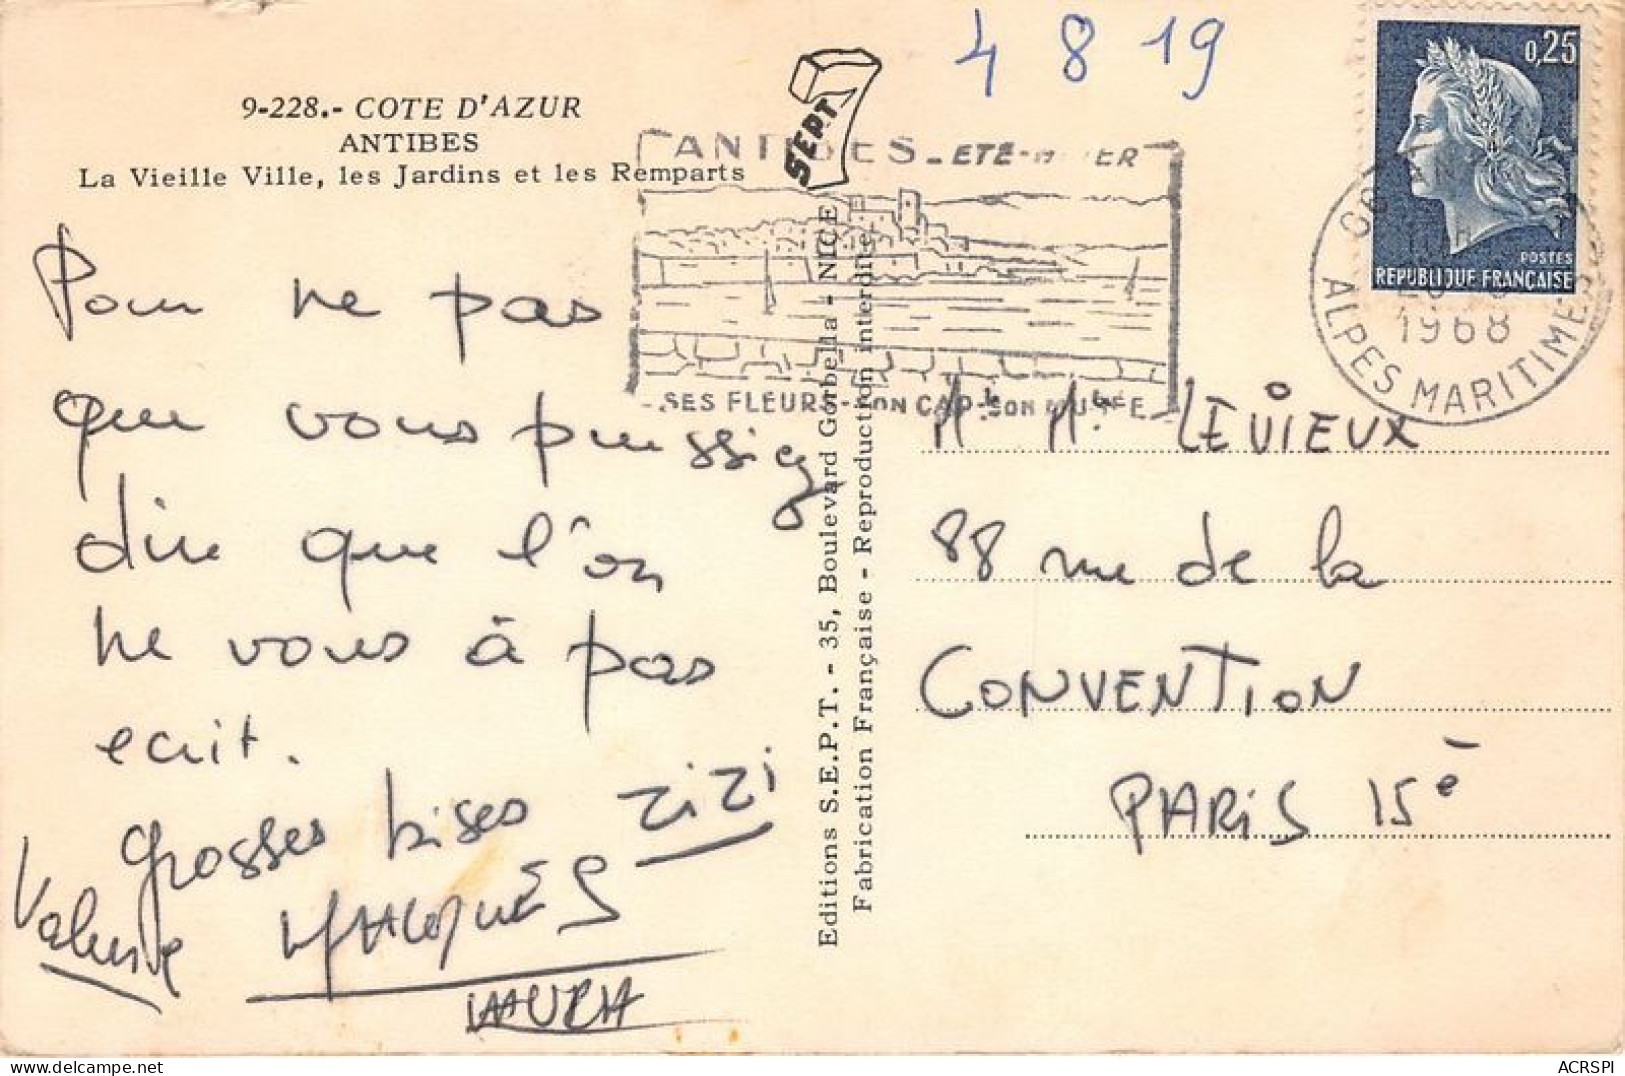 4 8 19
0,25
POSTES
REPUBLIQUE FRANÇAISE
9-228.- COTE D'AZUR
ANTIBES
La Vieille Ville, les Jardins et les Remparts
SEPT
ANTIBES - ETE-HIVER
SES FLEURS - SON CAP - SON MUSEE
1968
ALPES MARITIMES
Pour ne pas
que vous puissiez
dire que l'on
ne vous à pas
ecrit.
grosses bises ZiZi
Valerie JACQUES
LAURA
Editions S.E.P.T. - 35, Boulevard Gorbella - NICE
Fabrication Française - Reproduction interdite
Mr Me LEVIEUX
88 rue de la
CONVENTION
PARIS 15è
delcampe.net
ACRSPI